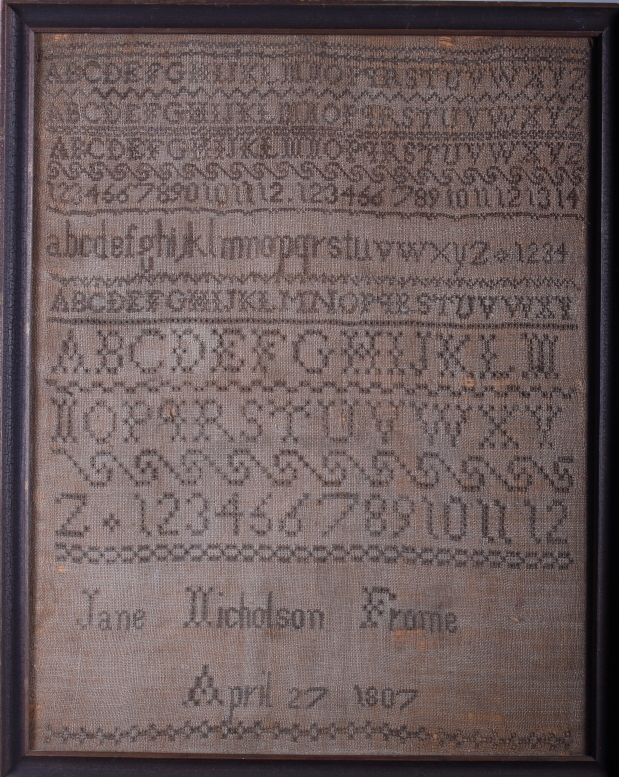 ABCDEFGHIJKLMNOPQRSTUVWXYZ
ABCDEFGHIJKLMNOPQRSTUVWXYZ
ABCDEFGHIJKLMNOPQRSTUVWXYZ
123456789101112.1234567891011121314
abcdefghijklmnopqrstuvwxyz 1234
ABCDEFGHIJKLMNOPQRSTUVWXY
ABCDEFGHIJKLM
NOPQRSTUVWXY
Z 123456789101112
Jane Nicholson Frome
April 27 1807